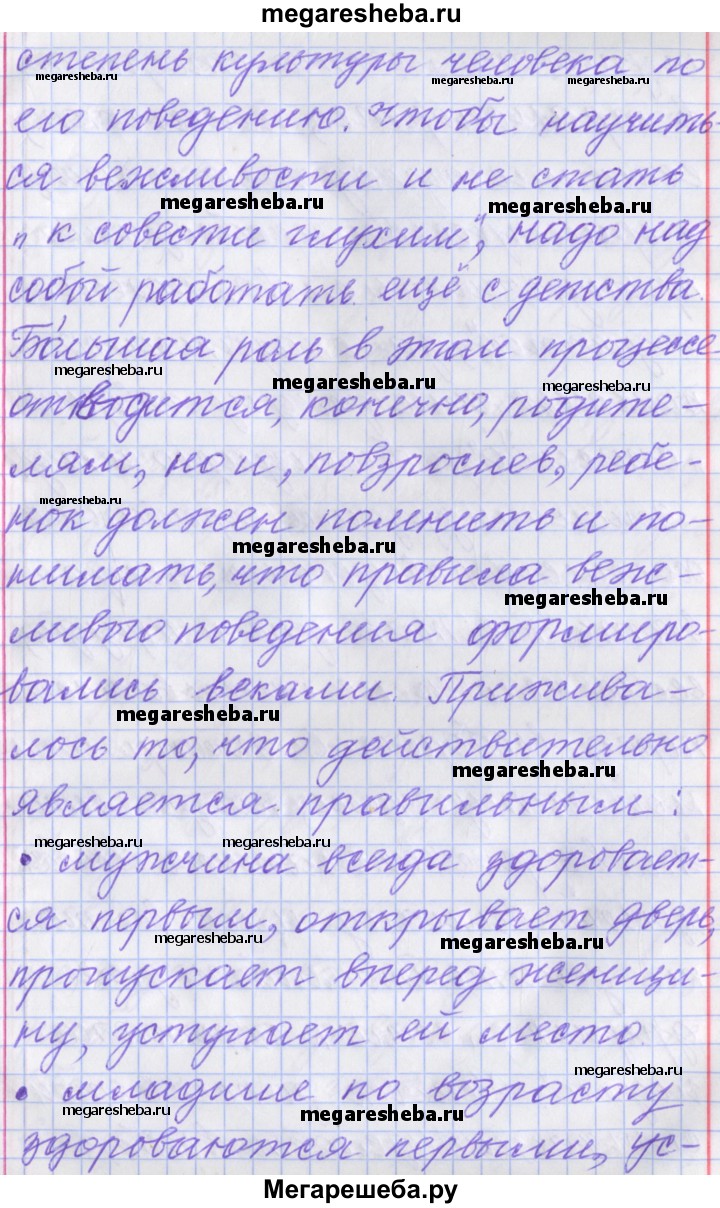 megaresheba.ru
степень культуры человека по
megaresheba.ru megaresheba.ru megaresheba.ru
его поведению. Чтобы научить-
ся вежливости и не стать
megaresheba.ru megaresheba.ru
„к совести глухим“, надо над
собой работать ещё с детства.
Бо́льшая роль в этом процессе
megaresheba.ru megaresheba.ru megaresheba.ru
отводится, конечно, родите-
лям, но и, повзрослев, ребе-
megaresheba.ru
нок должен помнить и по-
megaresheba.ru
нимать, что правила веж-
megaresheba.ru
ливого поведения формиро-
вались веками. Прижива-
megaresheba.ru
лось то, что действительно
megaresheba.ru
является правильным:
megaresheba.ru megaresheba.ru
• мужчина всегда здоровает-
ся первым, открывает дверь,
megaresheba.ru megaresheba.ru
пропускает вперед женщи-
ну, уступает ей место.
megaresheba.ru
• младшие по возрасту
megaresheba.ru megaresheba.ru
здороваются первыми, ус-
Мегарешеба.ру